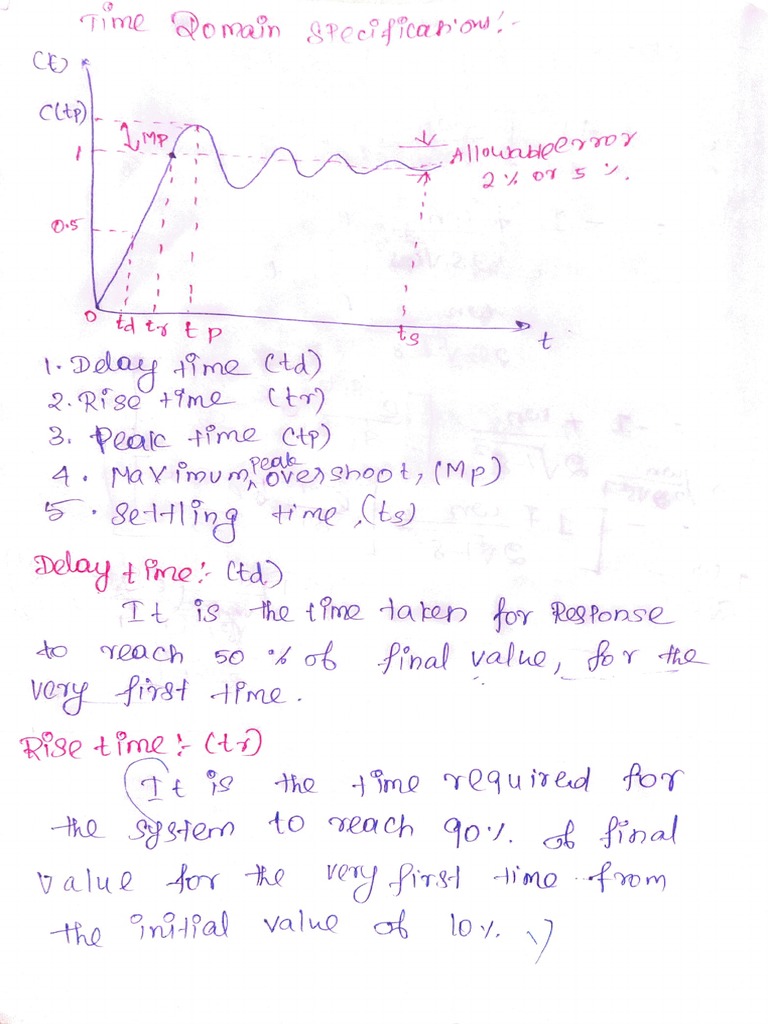 Time Domain Specifications:-
C(t)
C(tp)
Mp
1
Allowable error
2% or 5%.
0.5
0
td tr tp
ts
t
1. Delay time (td)
2. Rise time (tr)
3. Peak time (tp)
4. Maximum, peak overshoot, (Mp)
5. Settling time, (ts)
Delay time:- (td)
It is the time taken for Response
to reach 50% of final value, for the
very first time.
Rise time:- (tr)
It is the time required for
the system to reach 90%. of final
value for the very first time from
the initial value of 10%.